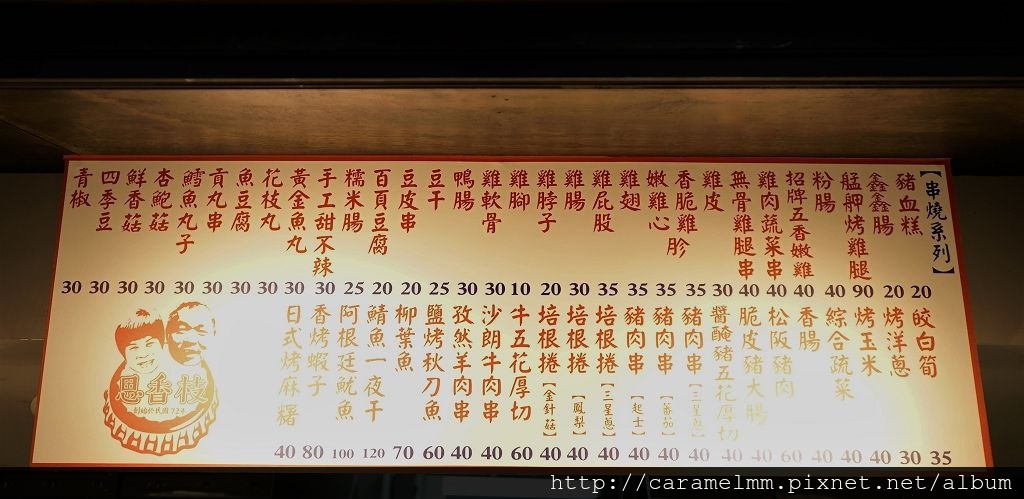 【串燒系列】
豬血糕 20
鑫鑫腸 20
艋舺烤雞腿 90
粉腸 40
招牌五香嫩雞 40
雞肉蔬菜串 40
無骨雞腿串 40
雞皮 30
香脆雞胗 35
嫩雞心 35
雞翅 35
雞屁股 35
雞腸 30
雞脖子 20
雞腳 10
雞軟骨 30
鴨腸 30
豆干 25
豆皮串 20
百頁豆腐 20
糯米腸 25
手工甜不辣 30
黃金魚丸 30
花枝丸 30
魚豆腐 30
貢丸串 30
鱈魚丸子 30
杏鮑菇 30
鮮香菇 30
四季豆 30
青椒 30
皎白筍 35
烤洋蔥 30
烤玉米 40
綜合蔬菜 40
香腸 40
松阪豬肉 60
脆皮豬大腸 40
醬醃豬五花厚切 40
豬肉串【三星蔥】 40
豬肉串【蕃茄】 40
豬肉串【起士】 40
培根捲【三星蔥】 40
培根捲【鳳梨】 40
培根捲【金針菇】 40
牛五花厚切 60
沙朗牛肉串 40
孜然羊肉串 40
鹽烤秋刀魚 60
柳葉魚 70
鯖魚一夜干 120
阿根廷魷魚 100
香烤蝦子 80
日式烤麻糬 40
恩香枝
創始於民國72年
http://caramelmm.pixnet.net/album